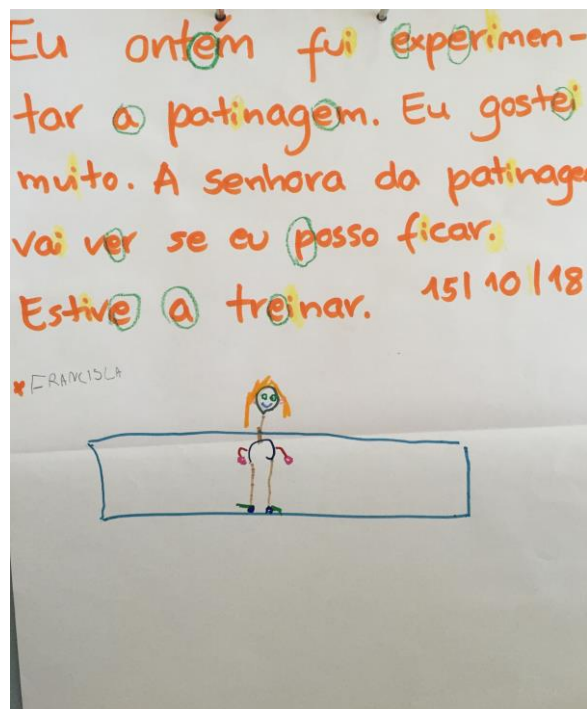 Eu ontém fui experimen-
tar a patinagem. Eu gostei
muito. A senhora da patinage
vai ver se eu posso ficar.
Estive a treinar. 15|10|18
FRANCISCA